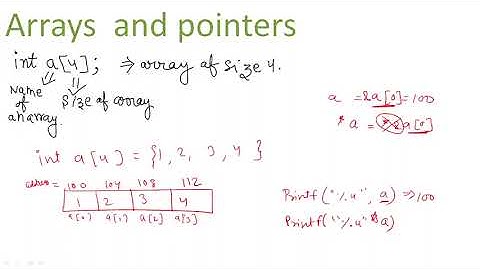 Arrays and pointers
int a[4]; ⇒ array of size 4.
Name of an array.
size of array
a = &a[0] = 100
*a = *&a[0]
int a[4] = {1, 2, 3, 4 }
= 100 104 108 112
1 2 3 4
a[0] a[1] a[2] a[3]
Printf("%u", a) ⇒ 100
Printf("%u" *a)